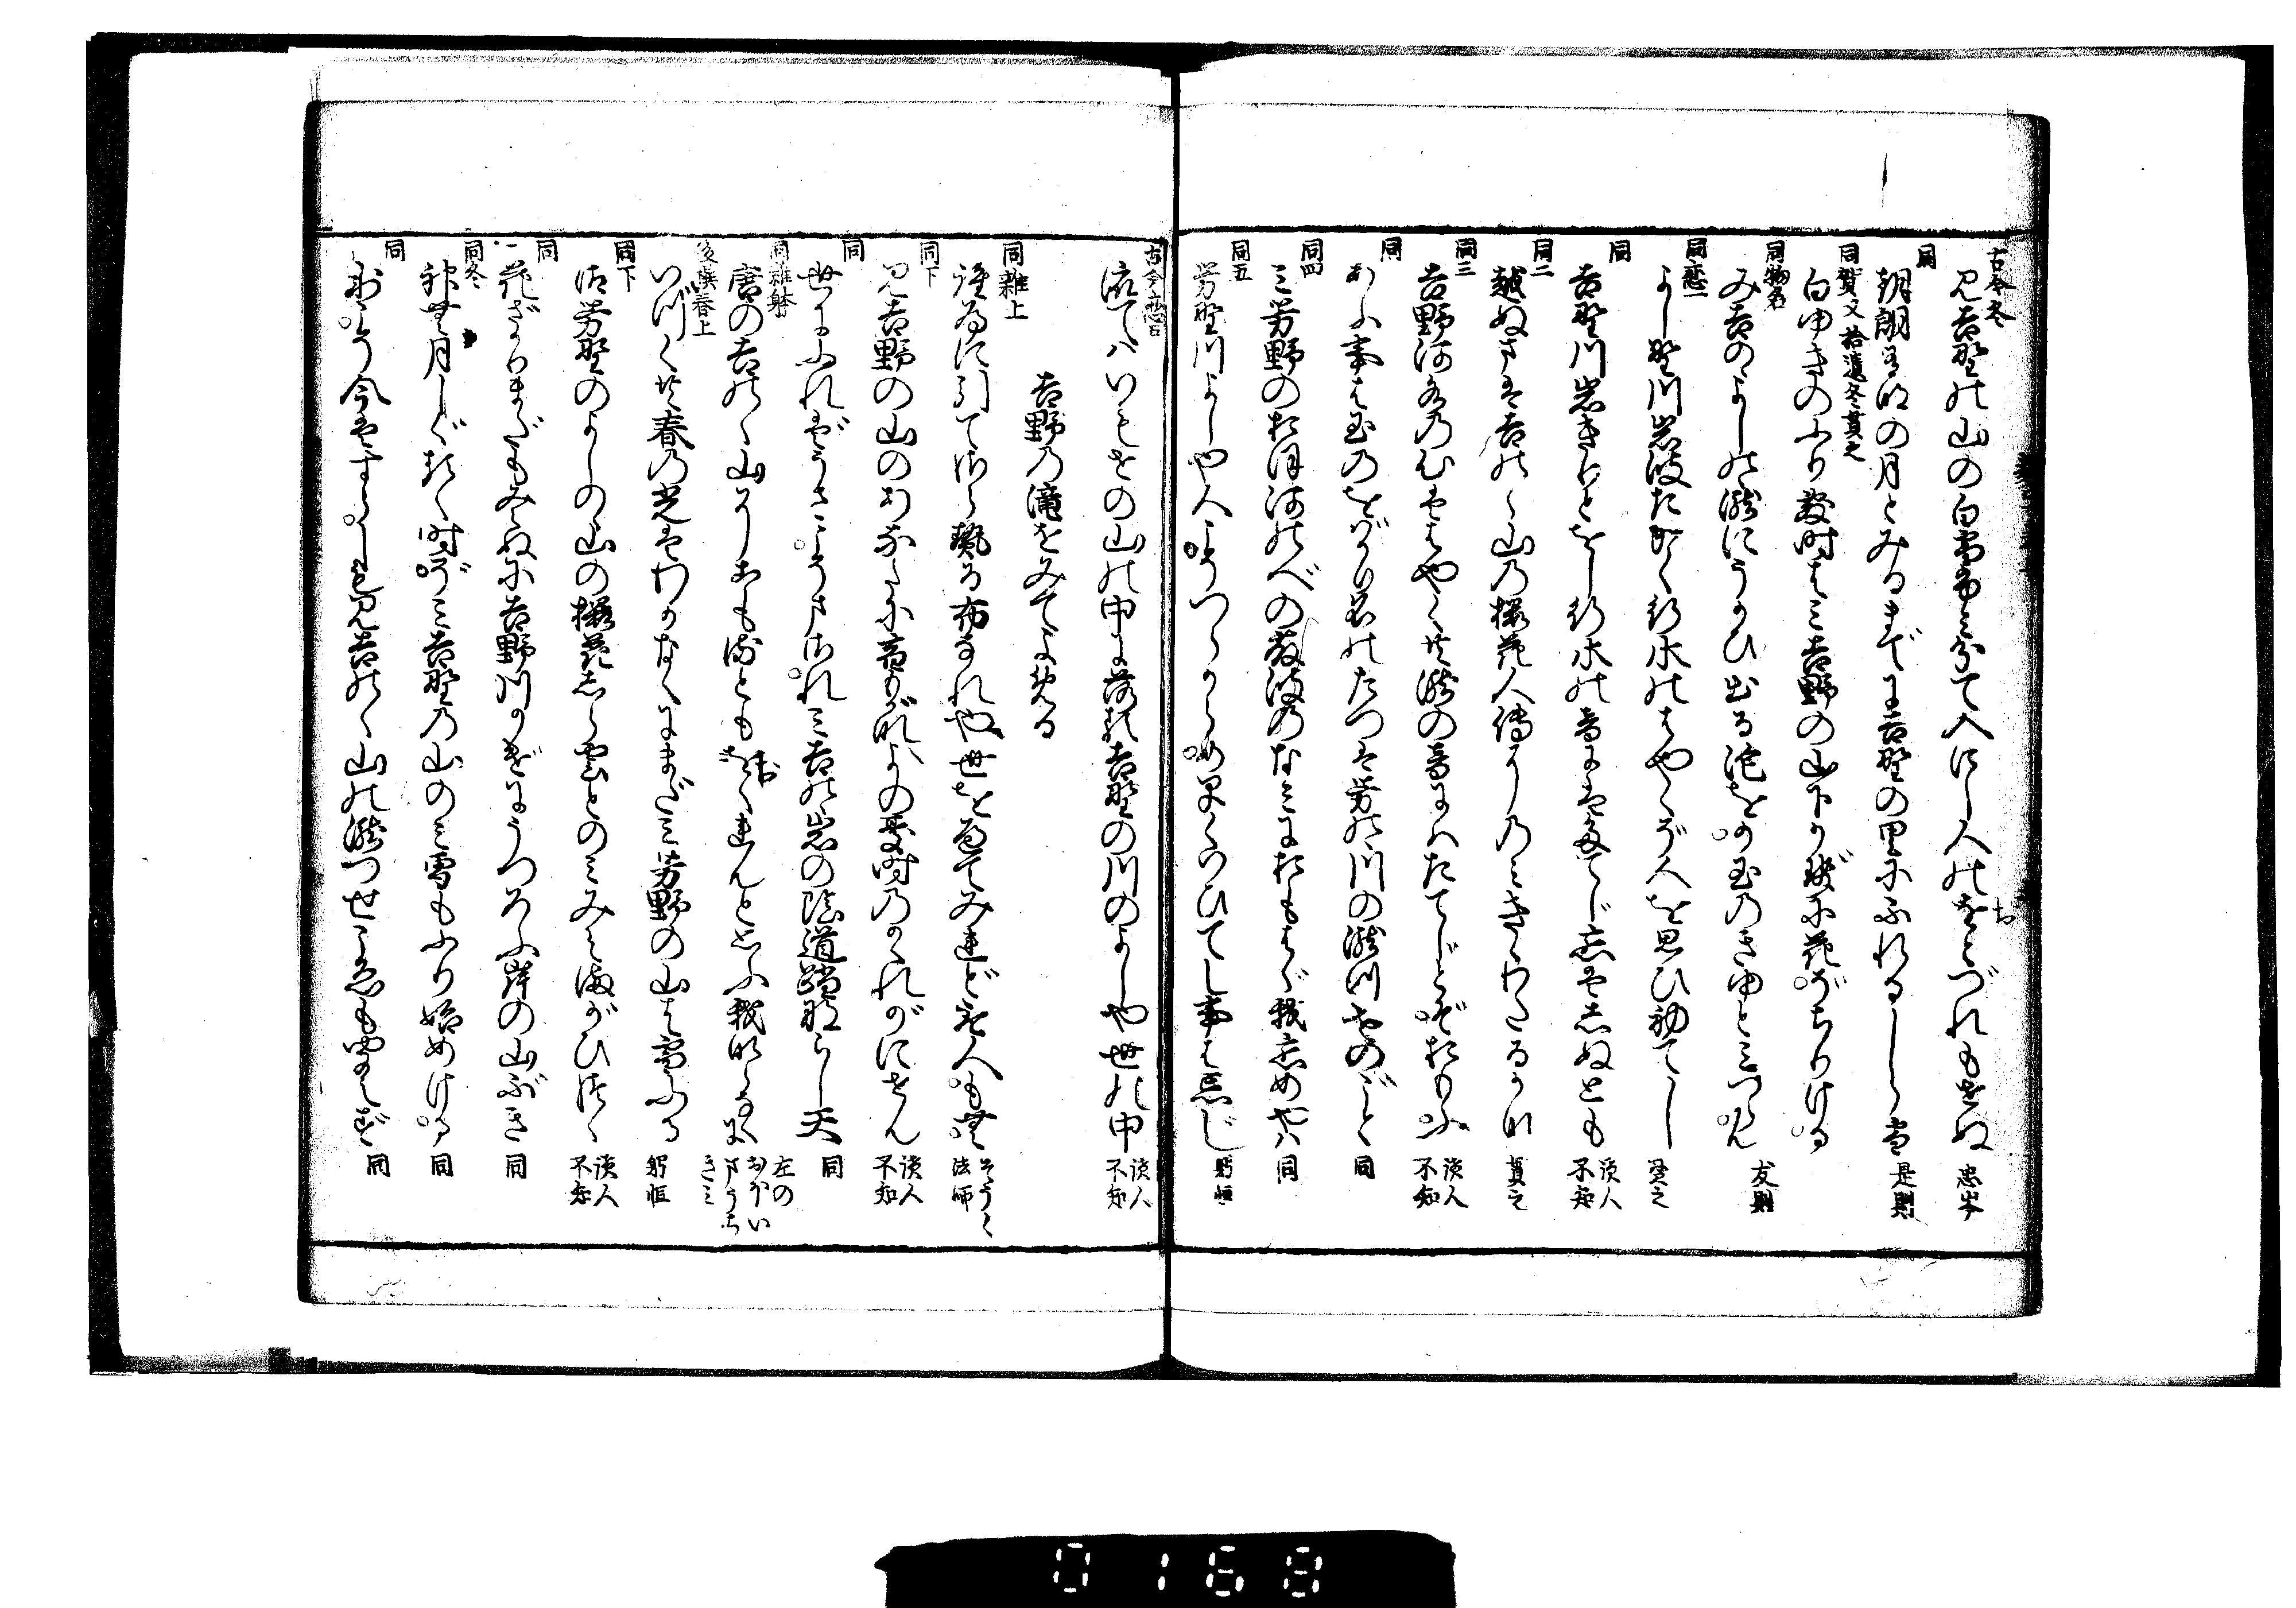 古今冬
見吉野の山の白雪ふみ分て入にし人のをとづれもせぬ 忠岑
同
朝朗有明の月とみるまでに吉野の里にふれるしら雪 是則
同賀又拾遺冬貫之
白ゆきのふりしく時はみ吉野の山下かぜに花ぞちりける
同物名
み吉のゝよしのゝ滝にうかひ出る泡をか玉のきゆとみつらん 友則
同恋一
よし野川岩波たかく行水のはやくぞ人を思ひ初てし 貫之
同
吉野川岩きりとをし行水の音にはたてじ恋はしぬとも 読人不知
同二
越ぬまは吉のゝ山の桜花人伝にのみきゝわたるかな 貫之
同三
吉野河水の心ははやくとも滝の音にはたてじとぞおもふ 読人不知
同
あふ事は玉のをばかり名のたつは芳野の川の滝川せのごと 同
同四
三芳野のおほ河のべの藤波のなみにおもはゞ我恋めやは 同
同五
芳野川よしや人こそつらからめ早くいひてし事は忘じ 躬恒
古今恋五
流てはいもせの山の中に落る吉野の川のよしや世の中 読人不知
吉野の滝をみてよめる
同雑上
誰為に引てさらせる布なれや世をへてみれどとる人も無 そうく法師
同下
見吉野の山のあなたに宿もがな世のうき時のかくれがにせん 読人不知
同
世にふればうさこそまされ三吉のゝ岩の陰道踏ならし天 同
同雑躰
唐の吉のゝ山にこもるともをくれんと思ふ我ならなくに 左のおほいまうちきみ
後撰春上
いづくとも春の光はわかなくにまだ三芳野の山は雪ふる 躬恒
同下
御芳野のよしの山の桜花しら雲とのみみえまがひつゝ 読人不知
同
花ざかりまだもみえぬに吉野川かげにうつろふ岸の山ぶき 同
同冬
神無月しぐるゝ時ぞ三吉野の山のみ雪もふり始めける 同
同
今はすらしも見吉のゝ山の滝つせこゑも聞えず 同
0168